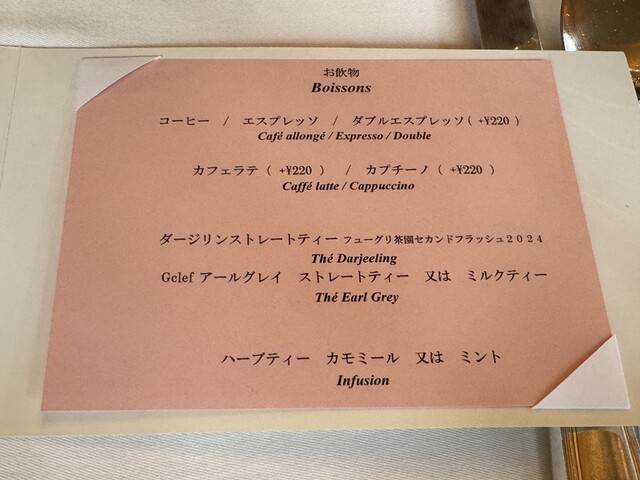 お飲物
Boissons
コーヒー / エスプレッソ / ダブルエスプレッソ( +¥220 )
Café allongé / Expresso / Double
カフェラテ ( +¥220 ) / カプチーノ ( +¥220 )
Caffé latte / Cappuccino
ダージリンストレートティー フューグリ茶園セカンドフラッシュ2024
Thé Darjeeling
Gclef アールグレイ ストレートティー 又は ミルクティー
Thé Earl Grey
ハーブティー カモミール 又は ミント
Infusion